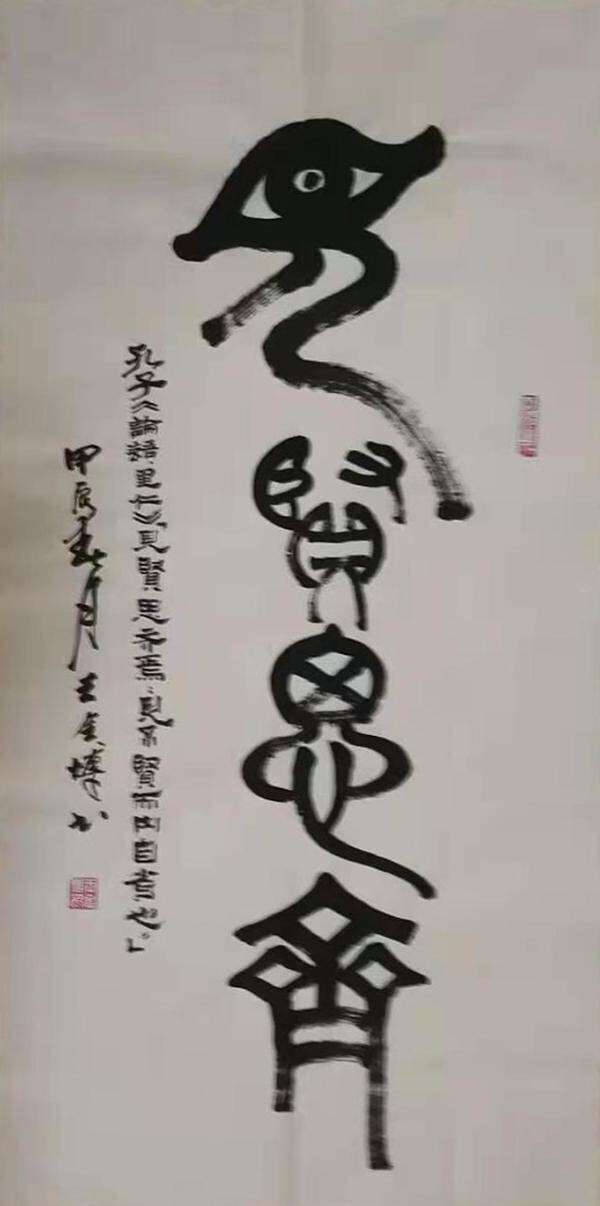 見賢思齊
孔子《論語·里仁》「見賢思齊焉，見不賢而內自省也。」
甲辰春月 書